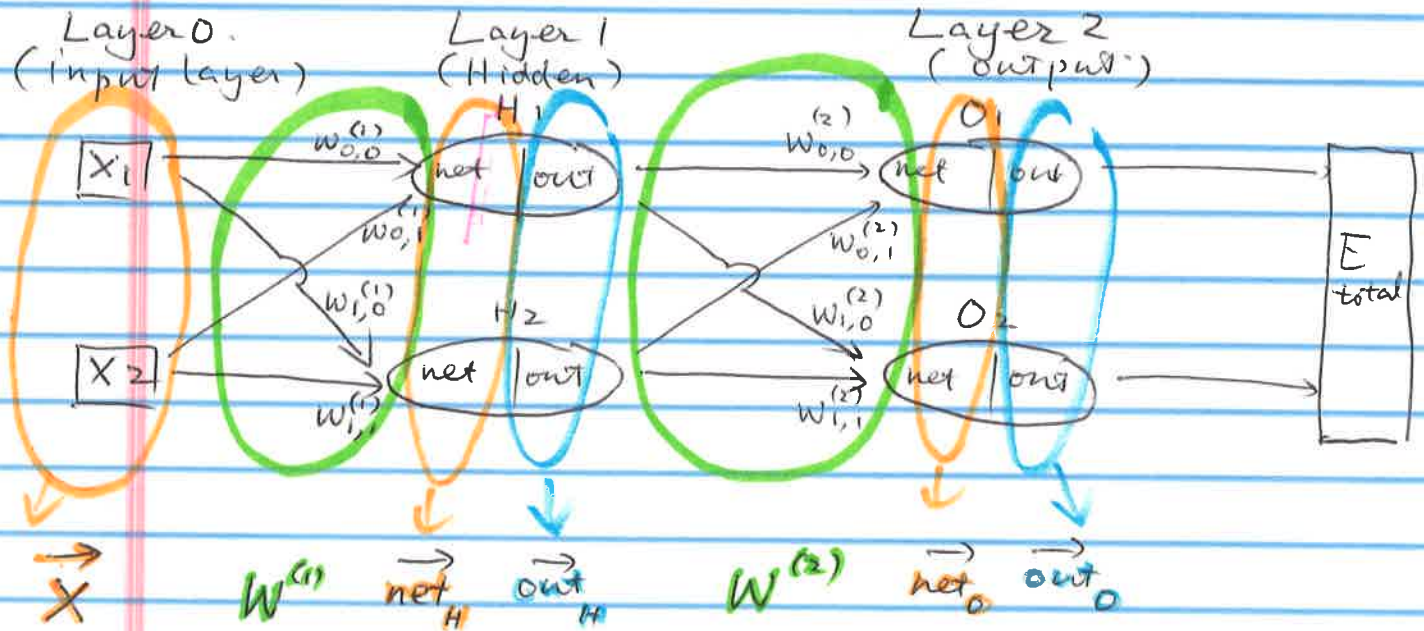 Layer 0.
(input layer)
Layer 1
(Hidden)
Layer 2
(output)
X1
X2
W0,0(1)
W0,1(1)
W1,0(1)
W1,1(1)
H1
net | out
H2
net | out
W0,0(2)
W0,1(2)
W1,0(2)
W1,1(2)
O1
net | out
O2
net | out
E
total
X
W(1)
netH
outH
W(2)
netO
outO